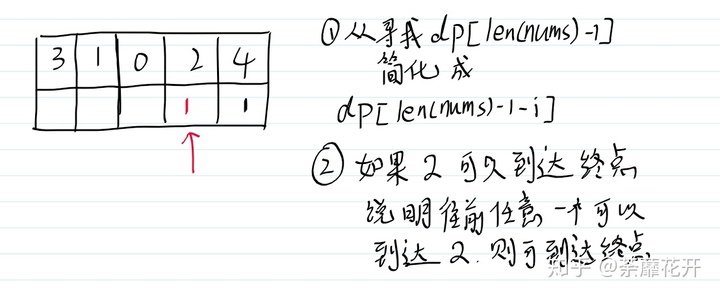 3 1 0 2 4
1 1
①从寻找dp[len(nums)-1]
简化成
dp[len(nums)-1-i]
②如果2可久到达终点
说明往前任意一个可以
到达2.则可到达终点
知乎 @荼蘼花开